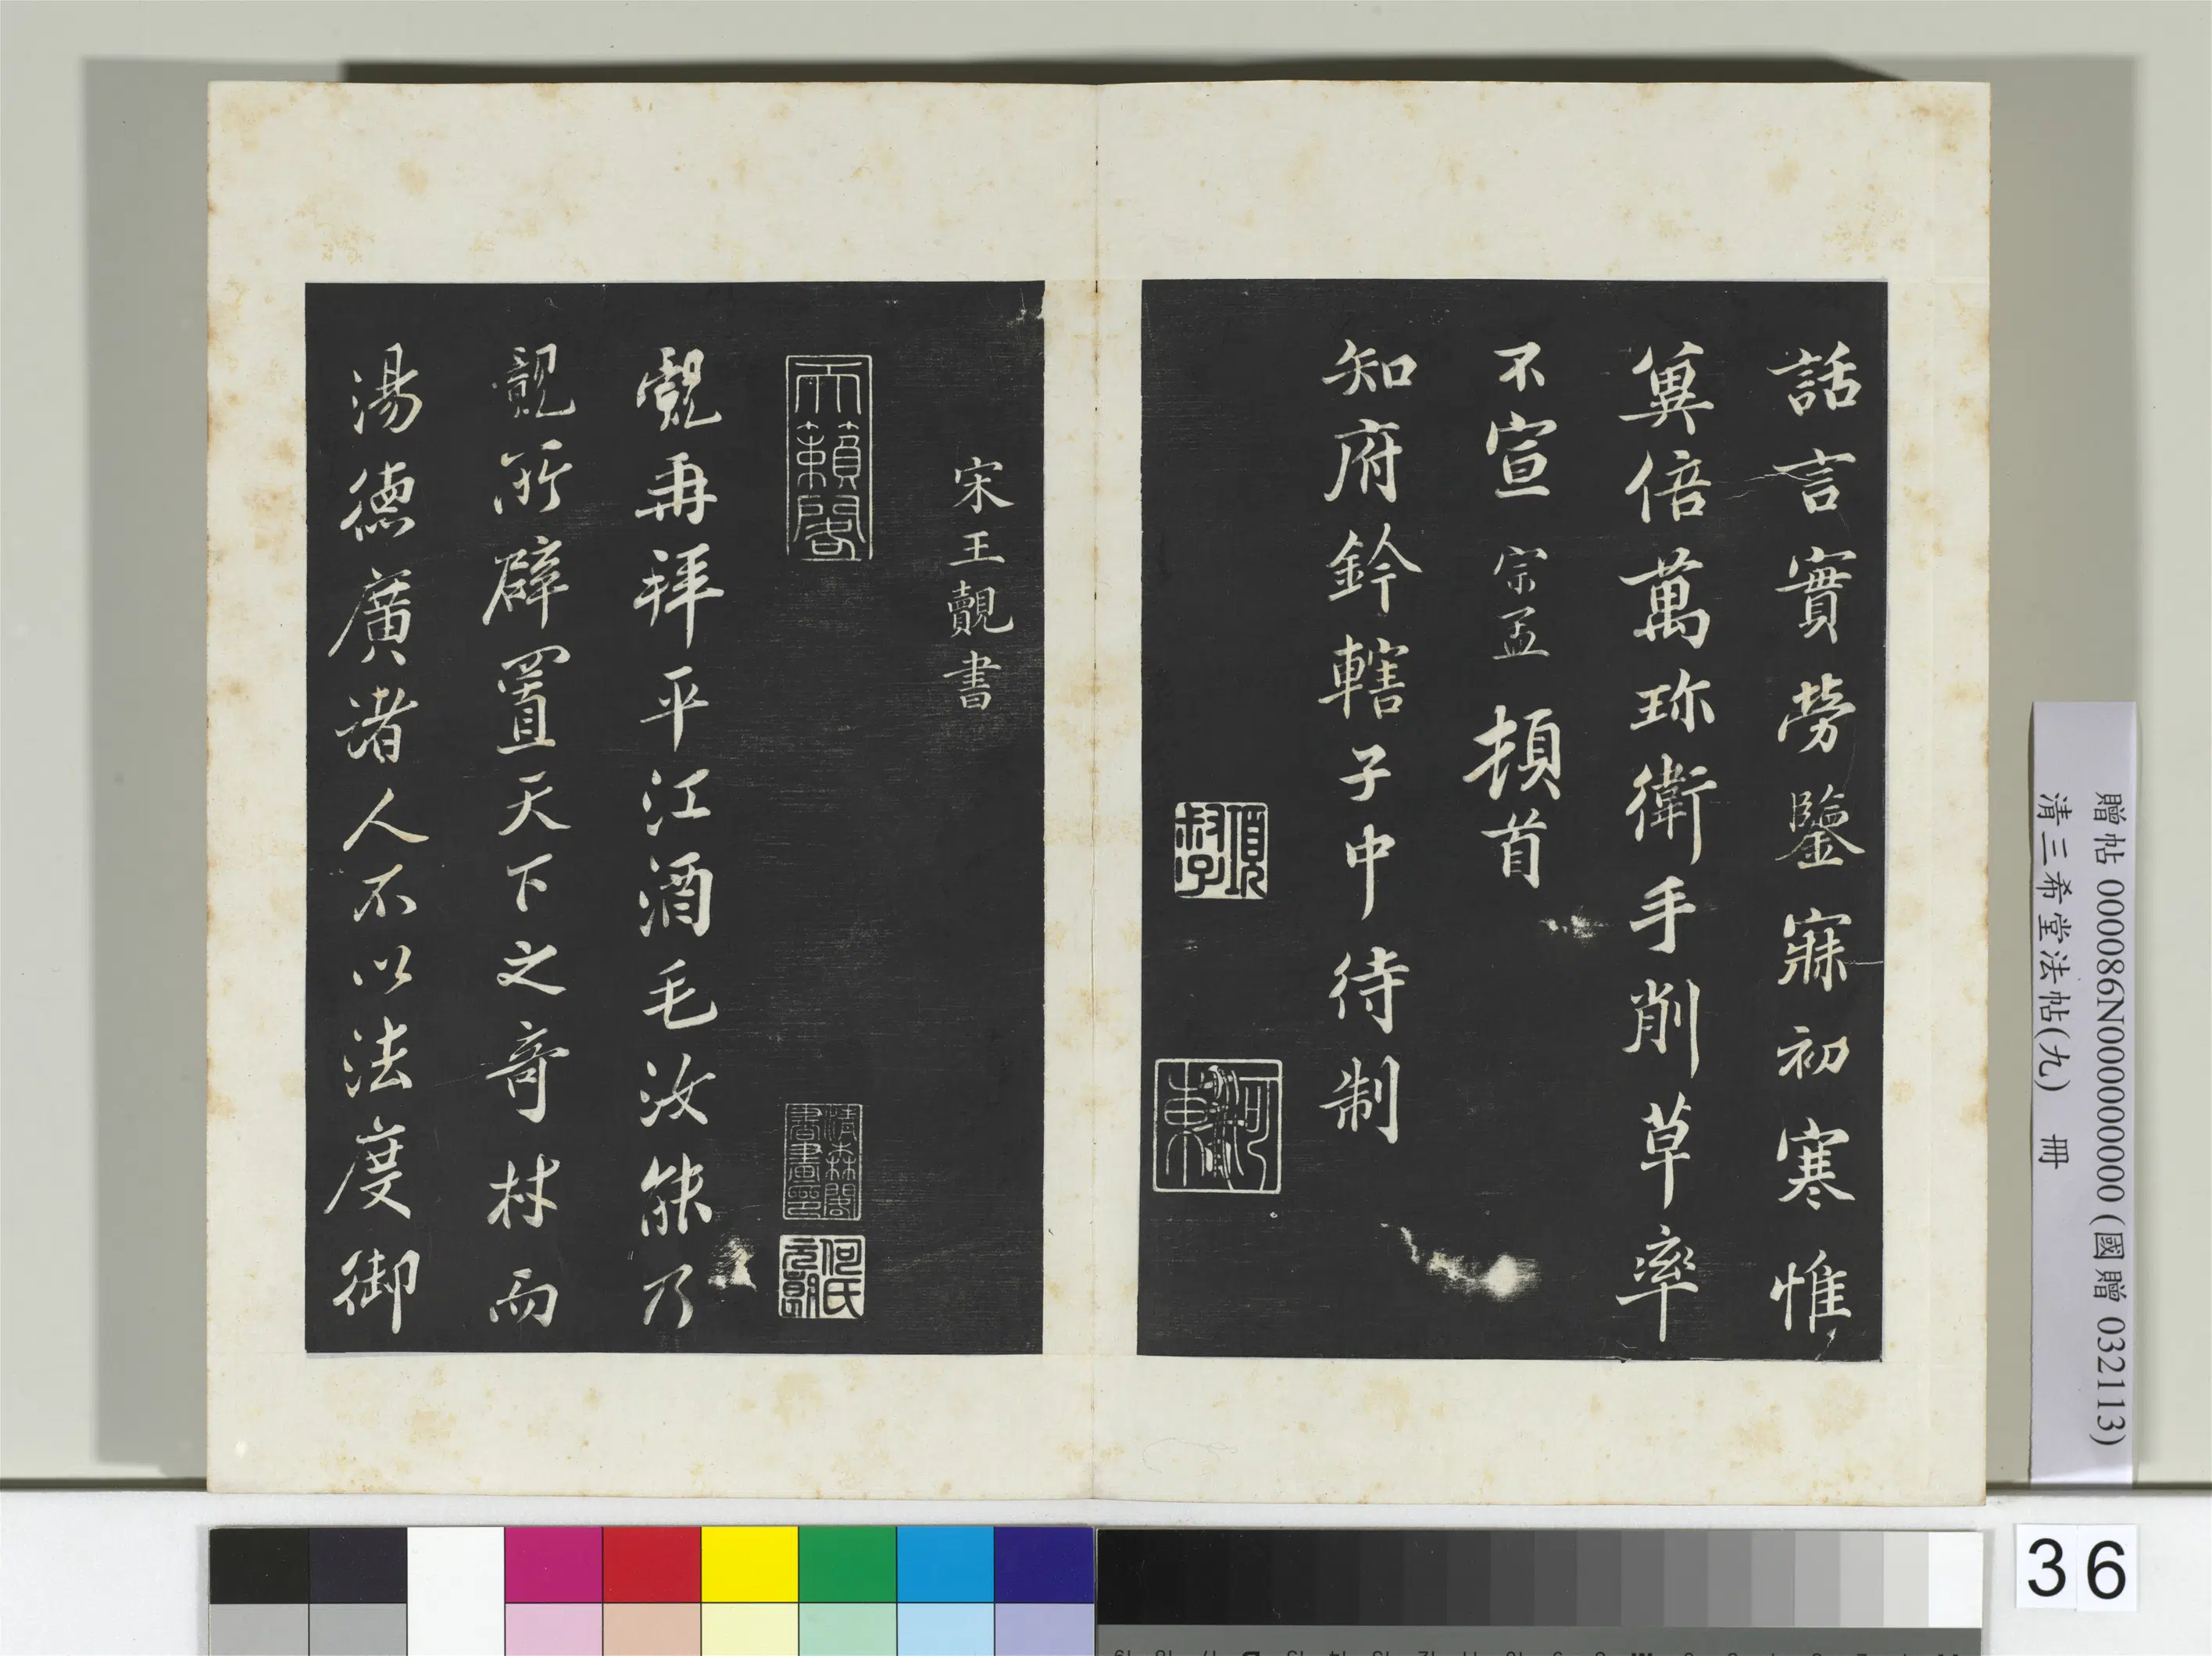 話言實勞鑒寐初寒惟
兾倍萬珎衛手削草率
不宣 宗孟 頓首
知府鈐轄子中待制
項叔子
河東
宋王覿書
天籟閣
清森閣書畫印
何氏元朗
覿再拜平江酒毛汝能乃
覿所辟置天下之奇材而
湯德廣諸人不以法度御
贈帖 000086N000000000 (國贈 032113)
清三希堂法帖(九) 冊
36